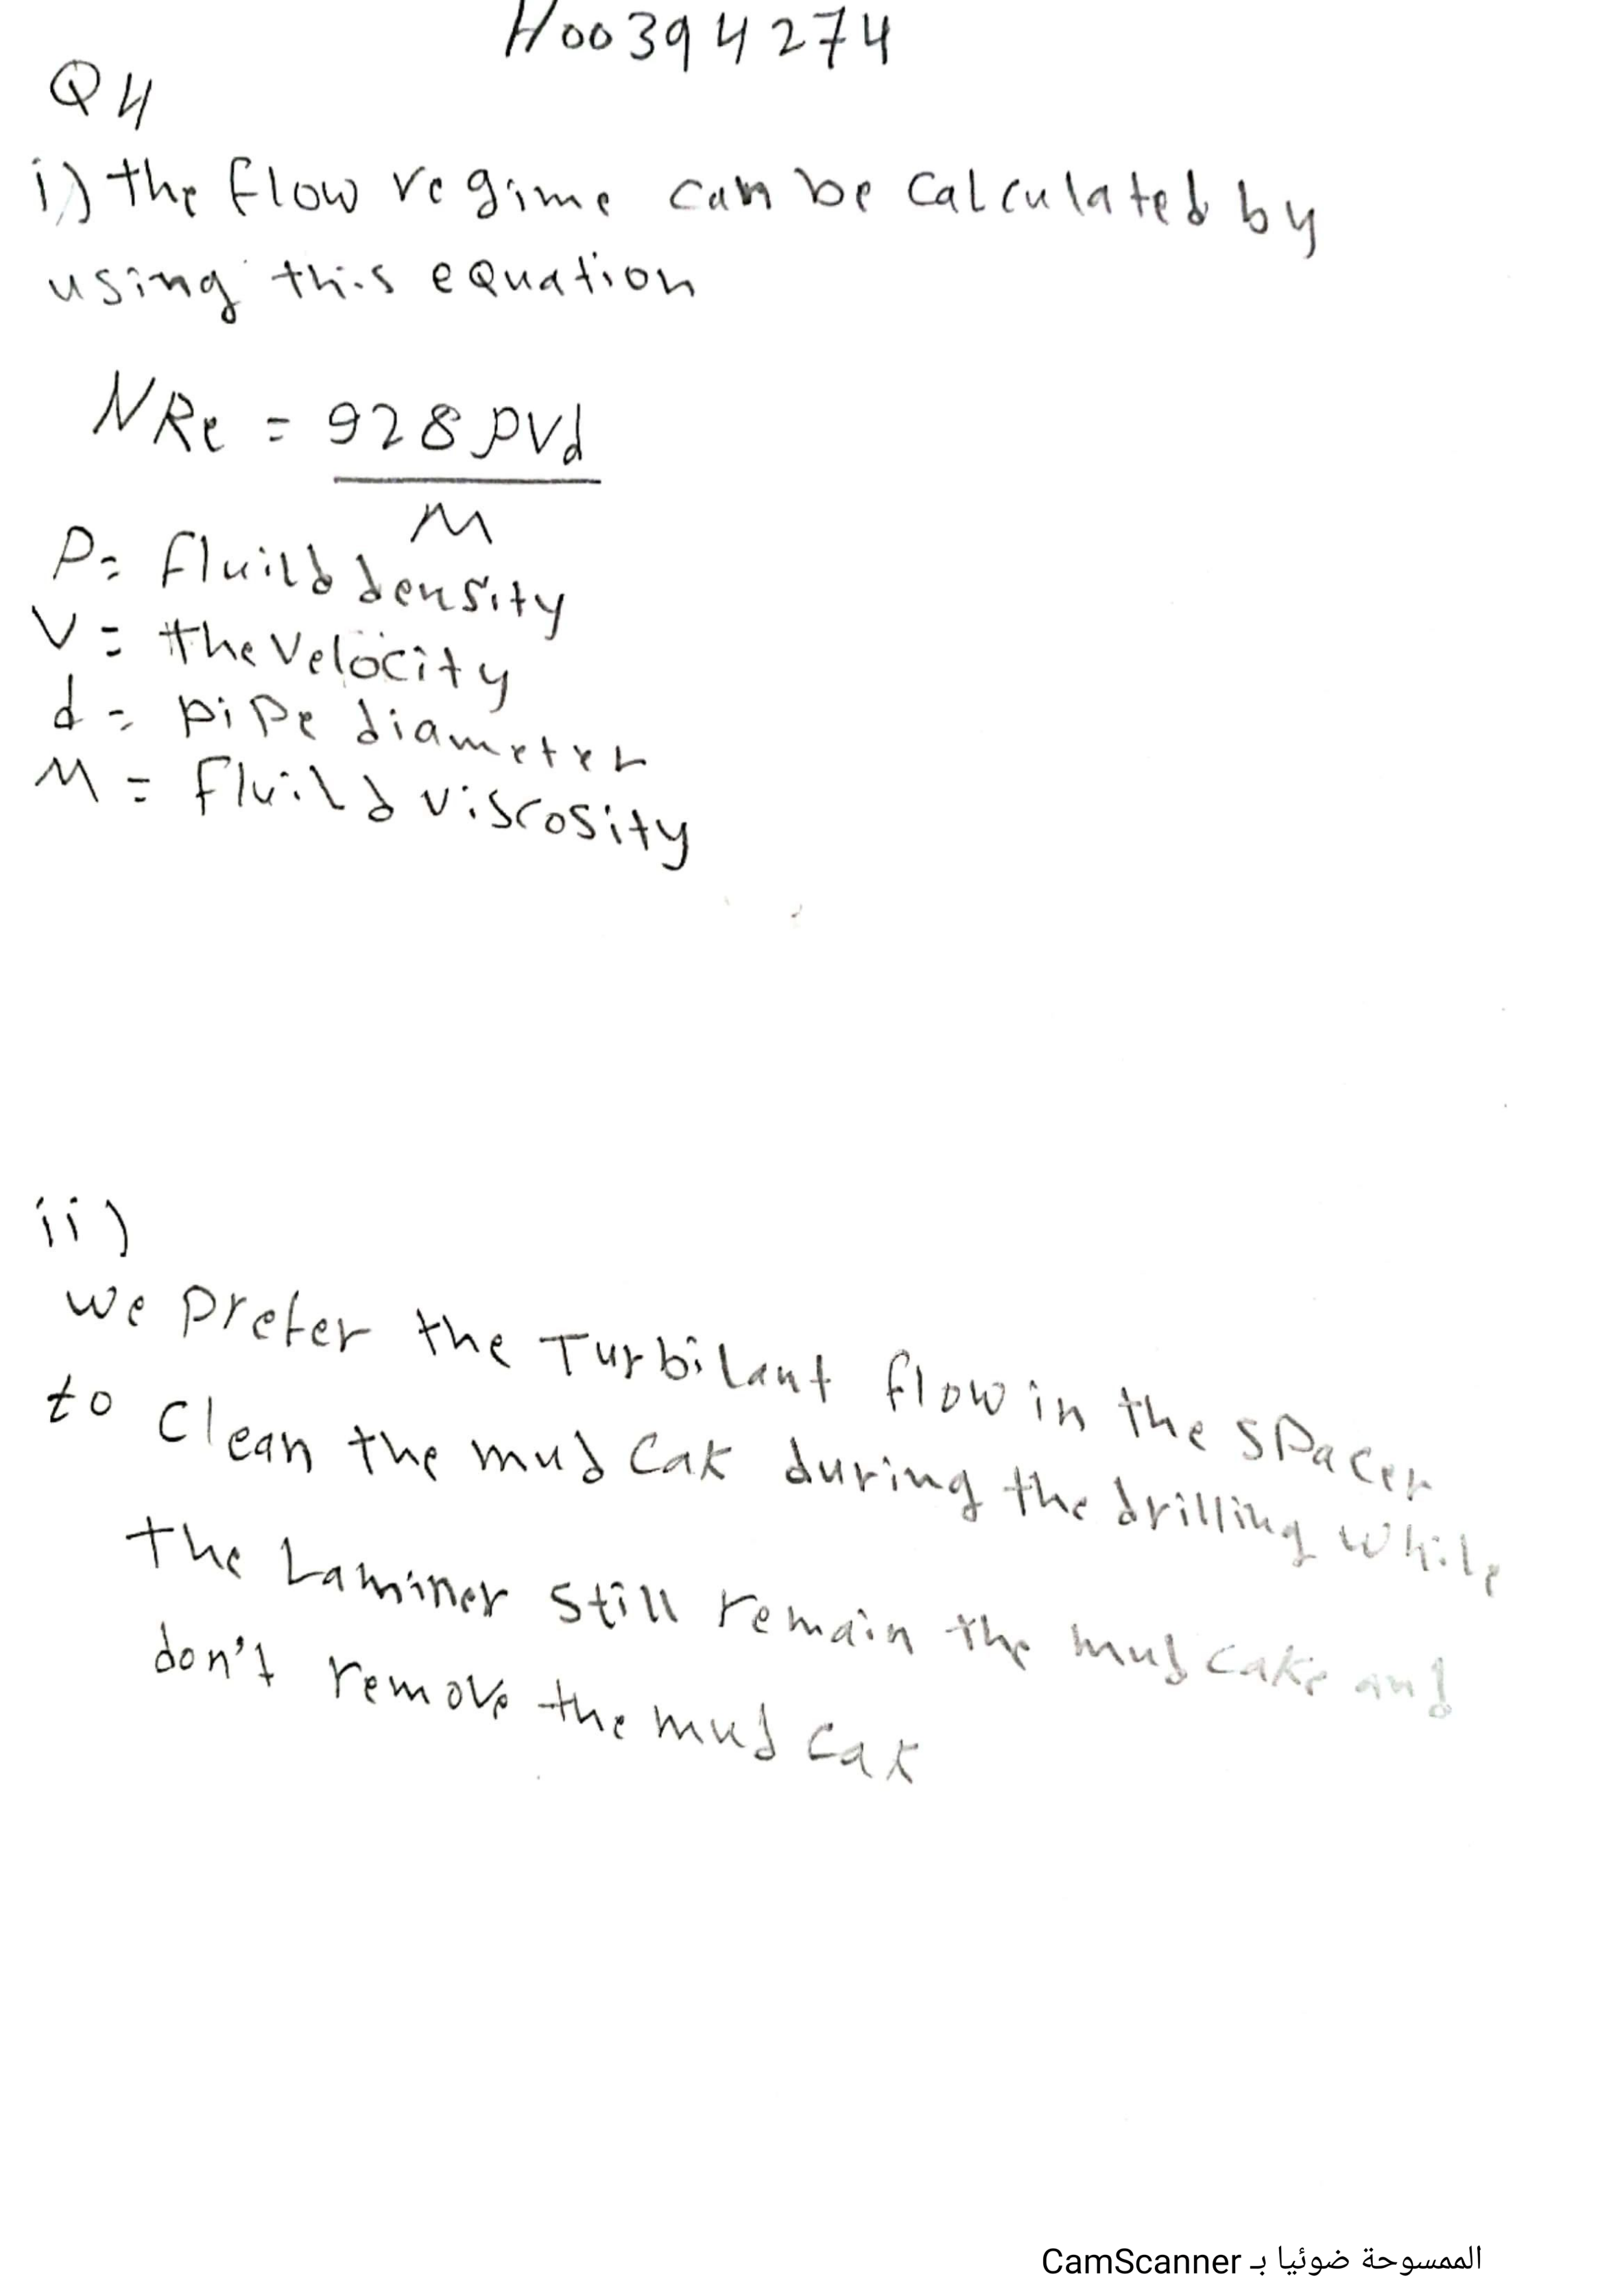 H00394274
Q4
i) the flow regime can be calculated by
using this equation
NRe = 928 ρVd
M
ρ= fluild density
V = the Velocity
d = pipe diameter
M = fluild viscosity
ii)
we prefer the Turbilant flow in the spacer
to clean the mud Cak during the drilling while
the Laminer still remain the mud cake and
don't remove the mud cak
الممسوحة ضوئيا بـ CamScanner